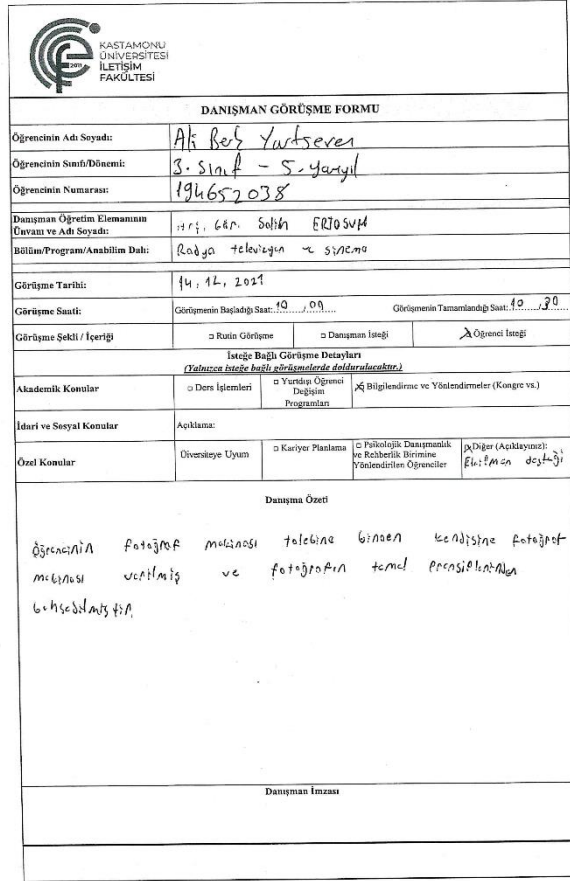 KASTAMONU
ÜNİVERSİTESİ
İLETİŞİM
FAKÜLTESİ
2011
DANIŞMAN GÖRÜŞME FORMU
Öğrencinin Adı Soyadı: Ali Berk Yurtsever
Öğrencinin Sınıfı/Dönemi: 3. Sınıf - 5. Yarıyıl
Öğrencinin Numarası: 194652038
Danışman Öğretim Elemanının
Ünvanı ve Adı Soyadı: Gör. Salih
Bölüm/Program/Anabilim Dalı: Radyo televizyon ve sinema
Görüşme Tarihi: 14.12.2021
Görüşme Saati: Görüşmenin Başladığı Saat: 10 : 00 Görüşmenin Tamamlandığı Saat: 10 : 30
Görüşme Şekli / İçeriği □ Rutin Görüşme □ Danışman İsteği X Öğrenci İsteği
İsteğe Bağlı Görüşme Detayları
(Yalnızca isteğe bağlı görüşmelerde doldurulacaktır.)
Akademik Konular □ Ders İşlemleri □ Yurtdışı Öğrenci Değişim Programları X Bilgilendirme ve Yönlendirmeler (Kongre vs.)
İdari ve Sosyal Konular Açıklama:
Özel Konular Üiversiteye Uyum □ Kariyer Planlama □ Psikolojik Danışmanlık ve Rehberlik Birimine Yönlendirilen Öğrenciler X Diğer (Açıklayınız): Ekipman desteği
Danışma Özeti
öğrencinin fotoğraf makinası talebine binaen kendisine fotoğraf
makinası verilmiş ve fotoğrafın temel prensiplerinden
bahsedilmiştir.
Danışman İmzası